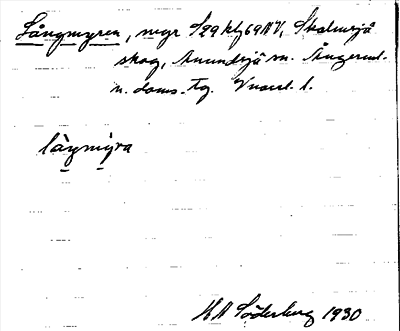 Långmyren, myr S29 kf69NV, Skalmsjö
skog, Anundsjö sn. Ångerml.
n. doms. Tg. l.
långmyra
HA Söderberg 1930